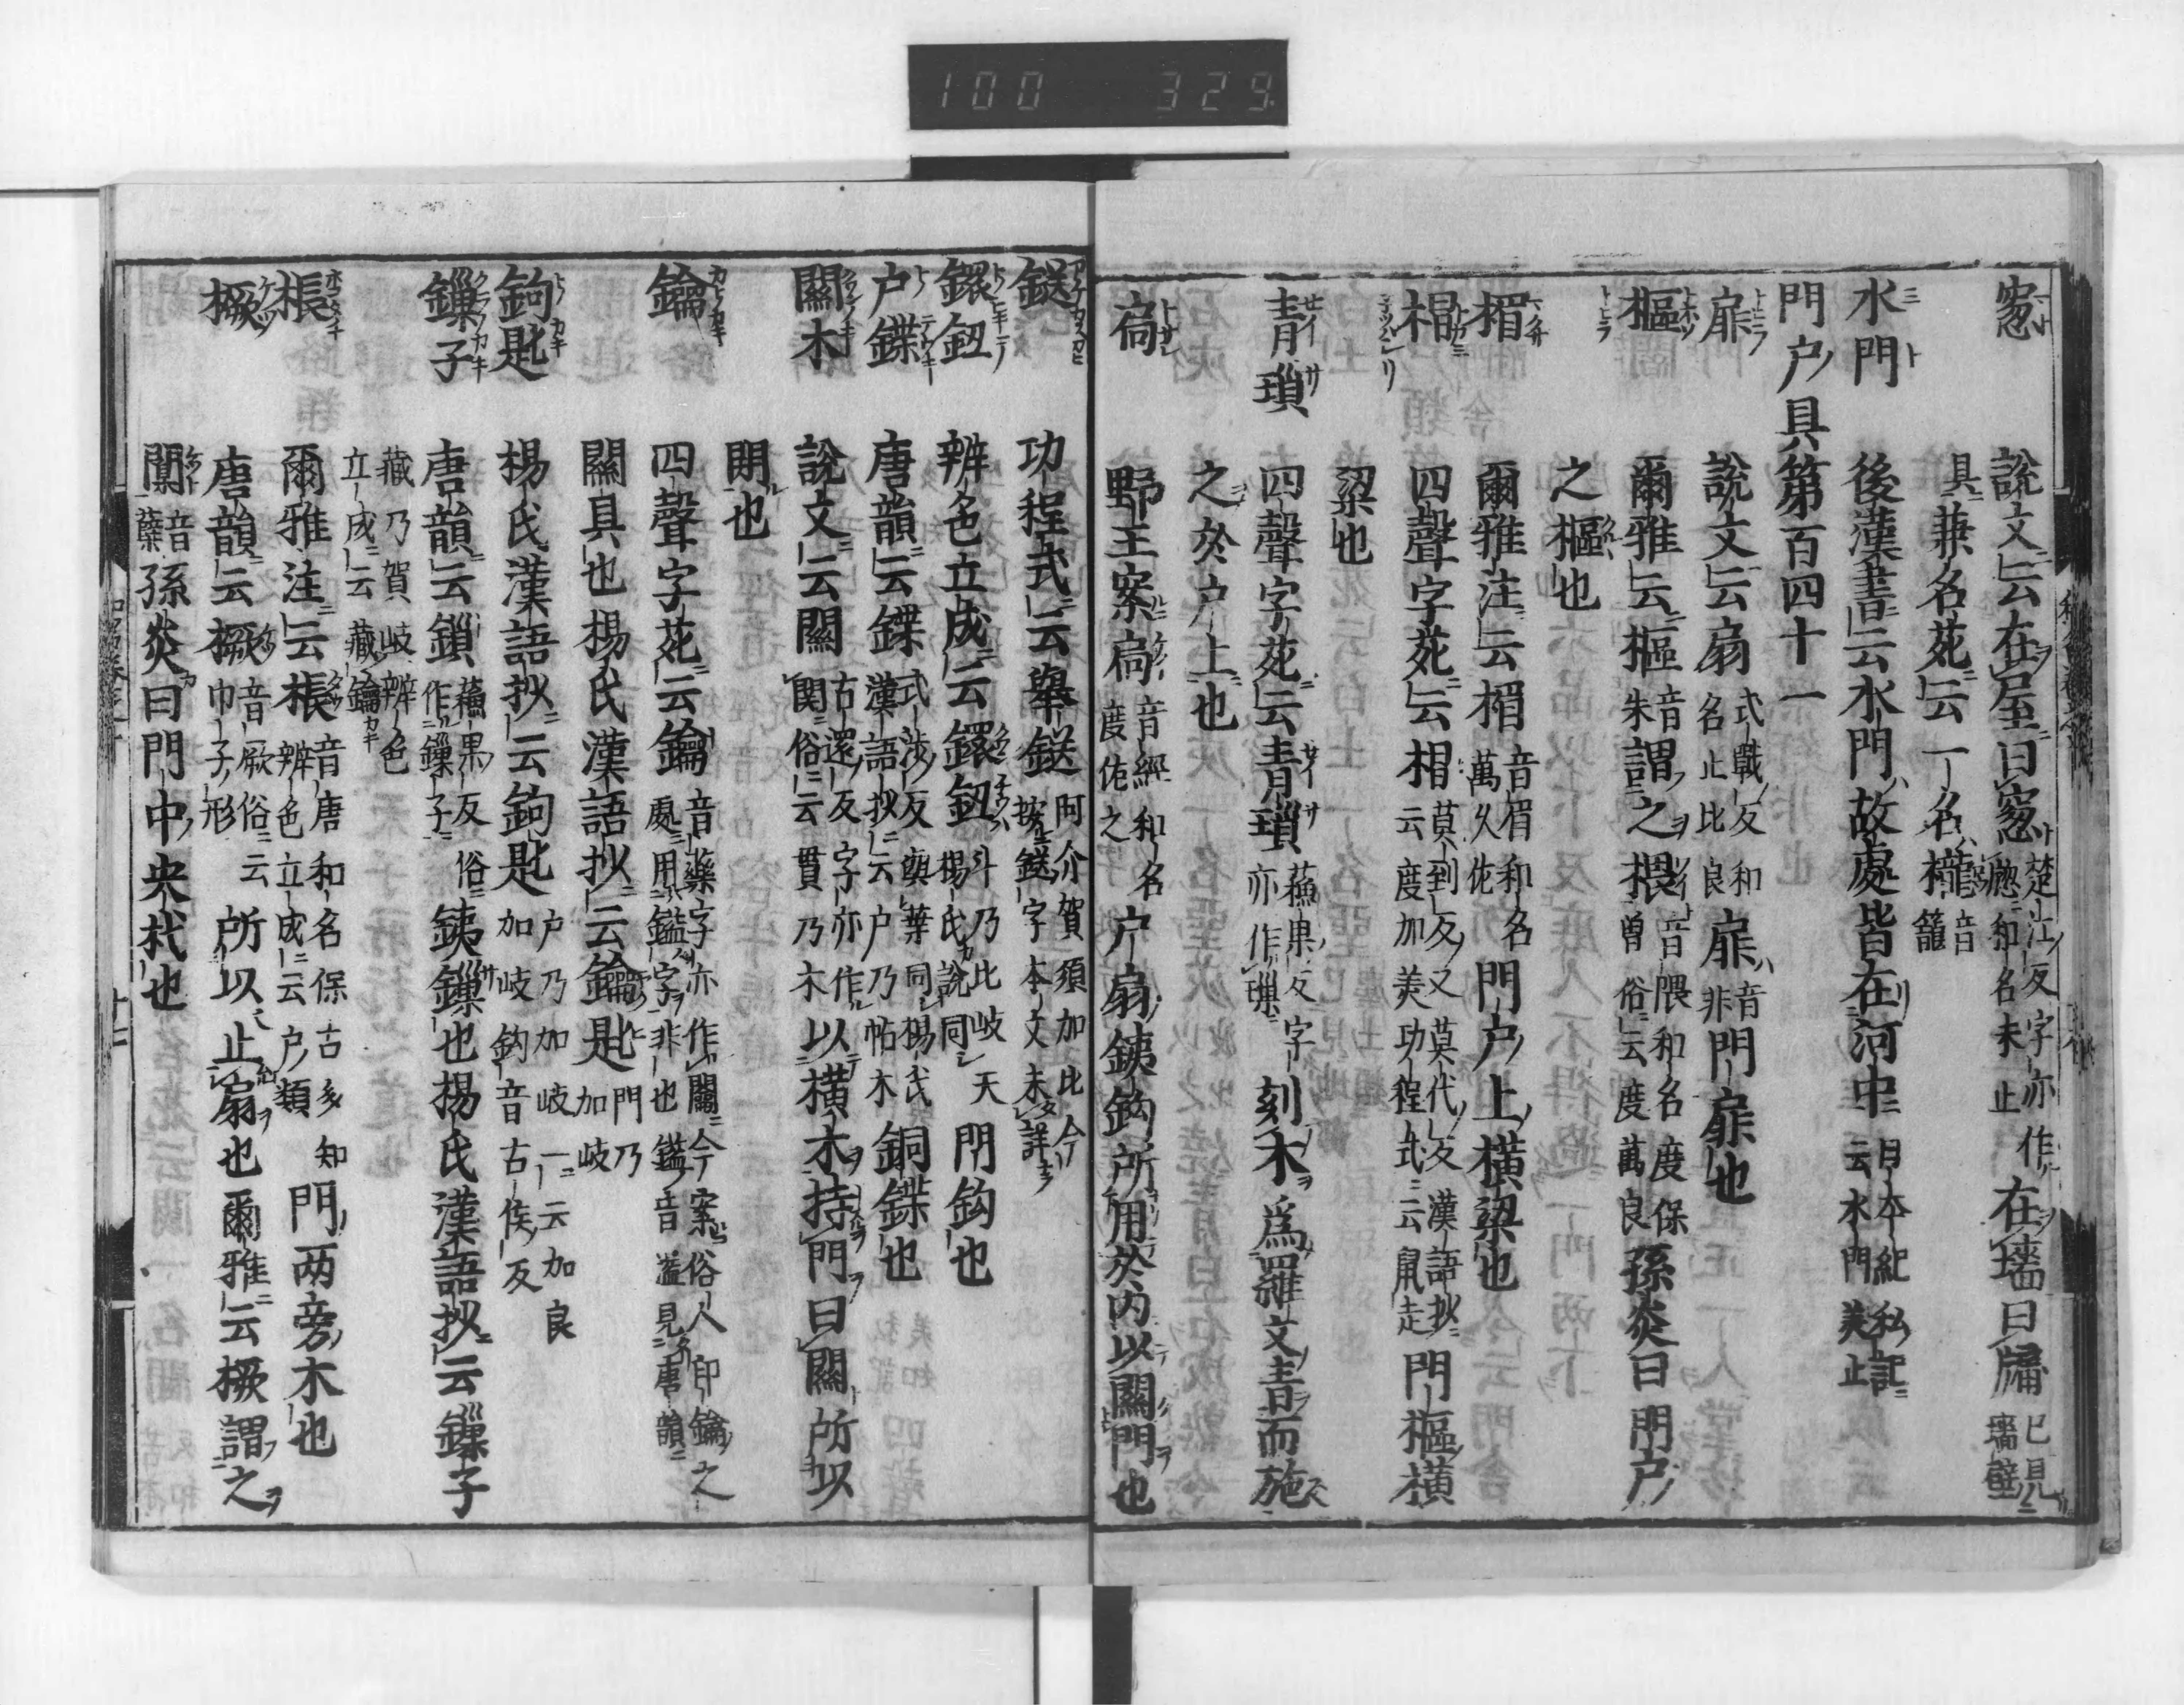 100 329
窓 説文云在屋曰窓 楚江反字亦作牕和名末止 在墻曰牖 已見墻壁
具兼名苑云一名櫳 音籠
水門 後漢書云水門故處皆在河中 日本紀私記云水門美止
門戸具第百四十一
扉 説文云扇 式戰反和名止比良 扉 音非 門扉也
樞 爾雅云樞 音朱 謂之椳 音隈和名度保曽俗云度萬良 孫炎曰門戸
之樞也
楣 爾雅注云楣 音眉和名萬久佐 門戸上横梁也
梠 四聲字苑云梠 莫到反又莫代反漢語抄云度加美功程式云鼠走 門樞横
梁也
青瑣 四聲字苑云青瑣 蘓果反字亦作璅 刻木爲羅文青而施
之於戸上也
扃 野王案扃 音經和名度佐之 戸扇鐵鈎所用於内以關門也
鎹 功程式云擧鎹 阿介賀須加比今按鎹字本文未詳
鐶鈕 辨色立成云鐶鈕 斗乃比岐天楊氏説同 門鈎也
戸鍱 唐韻云鍱 式渉反與葉同楊氏漢語抄云戸乃帖木 銅鍱也
關木 説文云關 古還反字亦作関俗云貫乃木 以横木持門曰關所以
閇也
鑰 四聲字苑云鑰 音藥字亦作闟今案俗人印鑰之處用鎰字非也鎰音溢見唐韻
關具也楊氏漢語抄云鑰匙 門乃加岐
鉤匙 楊氏漢語抄云鉤匙 戸乃加岐一云加良加岐鈎音古侯反
鏁子 唐韻云鎖 蘓果反俗作鏁子 鐵鏁也楊氏漢語抄云鏁子
藏乃賀岐辨色立成云藏鑰
棖 爾雅注云棖 音唐和名保古多知辨色立成云戸類 門両旁木也
橛 唐韻云橛 音厥俗云巾子形 所以止扇也爾雅云橛謂之
闑 音蘖 孫炎曰門中央杙也